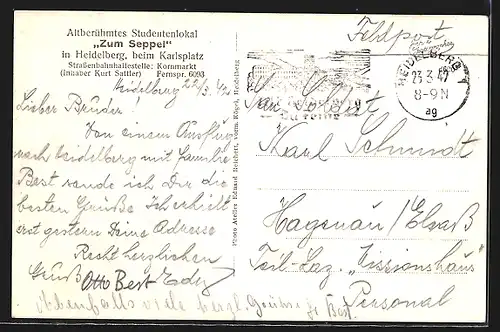 Altberühmtes Studentenlokal
„Zum Seppel"
in Heidelberg, beim Karlsplatz
Straßenbahnhaltestelle: Kornmarkt
(Inhaber Kurt Sattler) Fernspr. 6093
Heidelberg
Lieber Bruder!
Von einem Ausflug
nach Heidelberg mit Familie
Best sende ich Dir die
besten Grüße. Ich erhielt
erst gestern Deine Adresse
Recht herzlichen
Gruß
Otto Best
Ebenfalls viele herzl. Grüße Best.
Photo Atelier Eduard Reichert, vorm. Kögel, Heidelberg
Feldpost
HEIDELBERG
23.3.
8-9N
ag
Karl Schmidt
Hagenau/Elsaß
Teil-Laz. „Missionshaus"
Personal